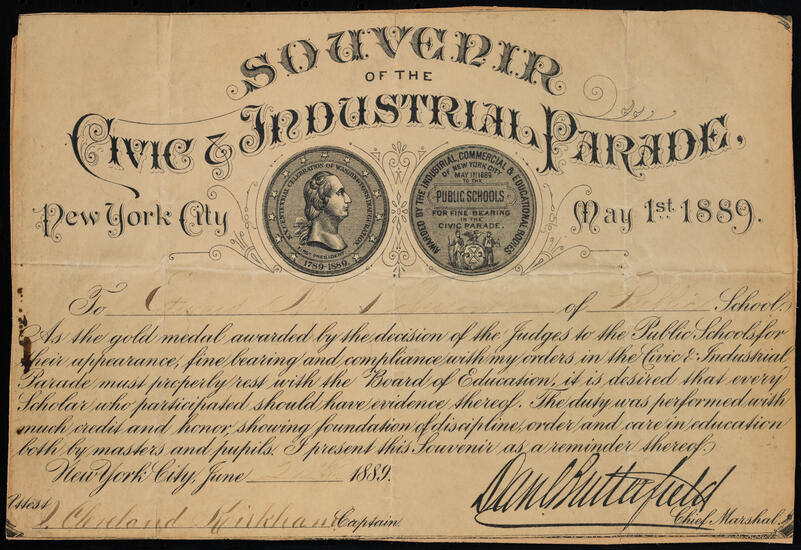 SOUVENIR
OF THE
CIVIC & INDUSTRIAL PARADE,
New York City
CENTENNIAL CELEBRATION OF WASHINGTON'S INAUGURATION
1ST PRESIDENT
1789-1889
AWARDED BY THE INDUSTRIAL, COMMERCIAL & EDUCATIONAL BODIES
OF NEW YORK CITY
MAY 1ST 1889
TO THE
PUBLIC SCHOOLS
FOR FINE BEARING
IN THE
CIVIC PARADE.
May 1st. 1889.
To of Public School.
As the gold medal awarded by the decision of the Judges to the Public Schools for
their appearance, fine bearing and compliance with my orders in the Civic & Industrial
Parade must properly rest with the Board of Education, it is desired that every
Scholar who participated should have evidence thereof. The duty was performed with
much credit and honor, showing foundation of discipline, order and care in education
both by masters and pupils. I present this Souvenir as a reminder thereof.
New York City, June 1889.
Dan Butterfield
Chief Marshal.
Attest
J. Cleveland Kinkham Captain.